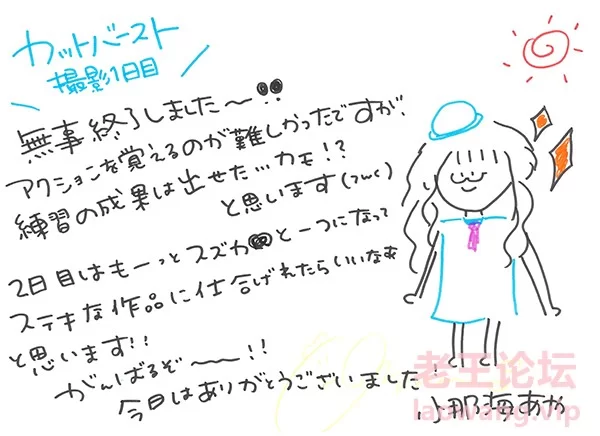 カットバースト
撮影1日目
無事終了しました〜!!
アクションを覚えるのが難しかったですが、
練習の成果は出せた…カモ!?
と思います(つωc)
2日目はもーっとスズカと一つになって
ステキな作品に仕上げれたらいいなぁ
と思います!!
がんばるぞ〜!!
今日はありがとうございました!
小那海あや
老王论坛
laowang.vip